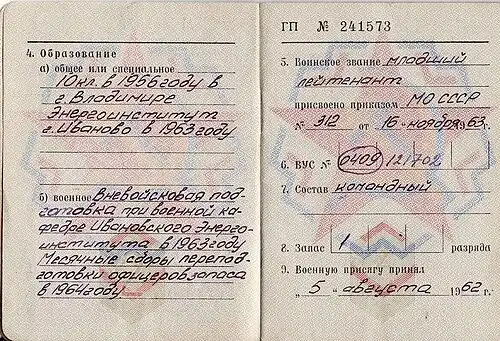 4. Образование
а) общее или специальное
10 кл. в 1956 году в
г. Владимире
Энергоинститут
г. Иваново в 1963 году
б) военное Вневойсковая под-
готовка при военной ка-
федре Ивановского Энерго-
института в 1963 году
Месячные сборы перепод-
готовки офицеров запаса
в 1964 году
ГП № 241573
5. Воинское звание младший
лейтенант
присвоено приказом МО СССР
№ 312 от 16 " ноября 1963 г.
6. ВУС № 0409 121702
7. Состав командный
8. Запас 1 разряда
9. Военную присягу принял
" 5 " августа 1962 г.